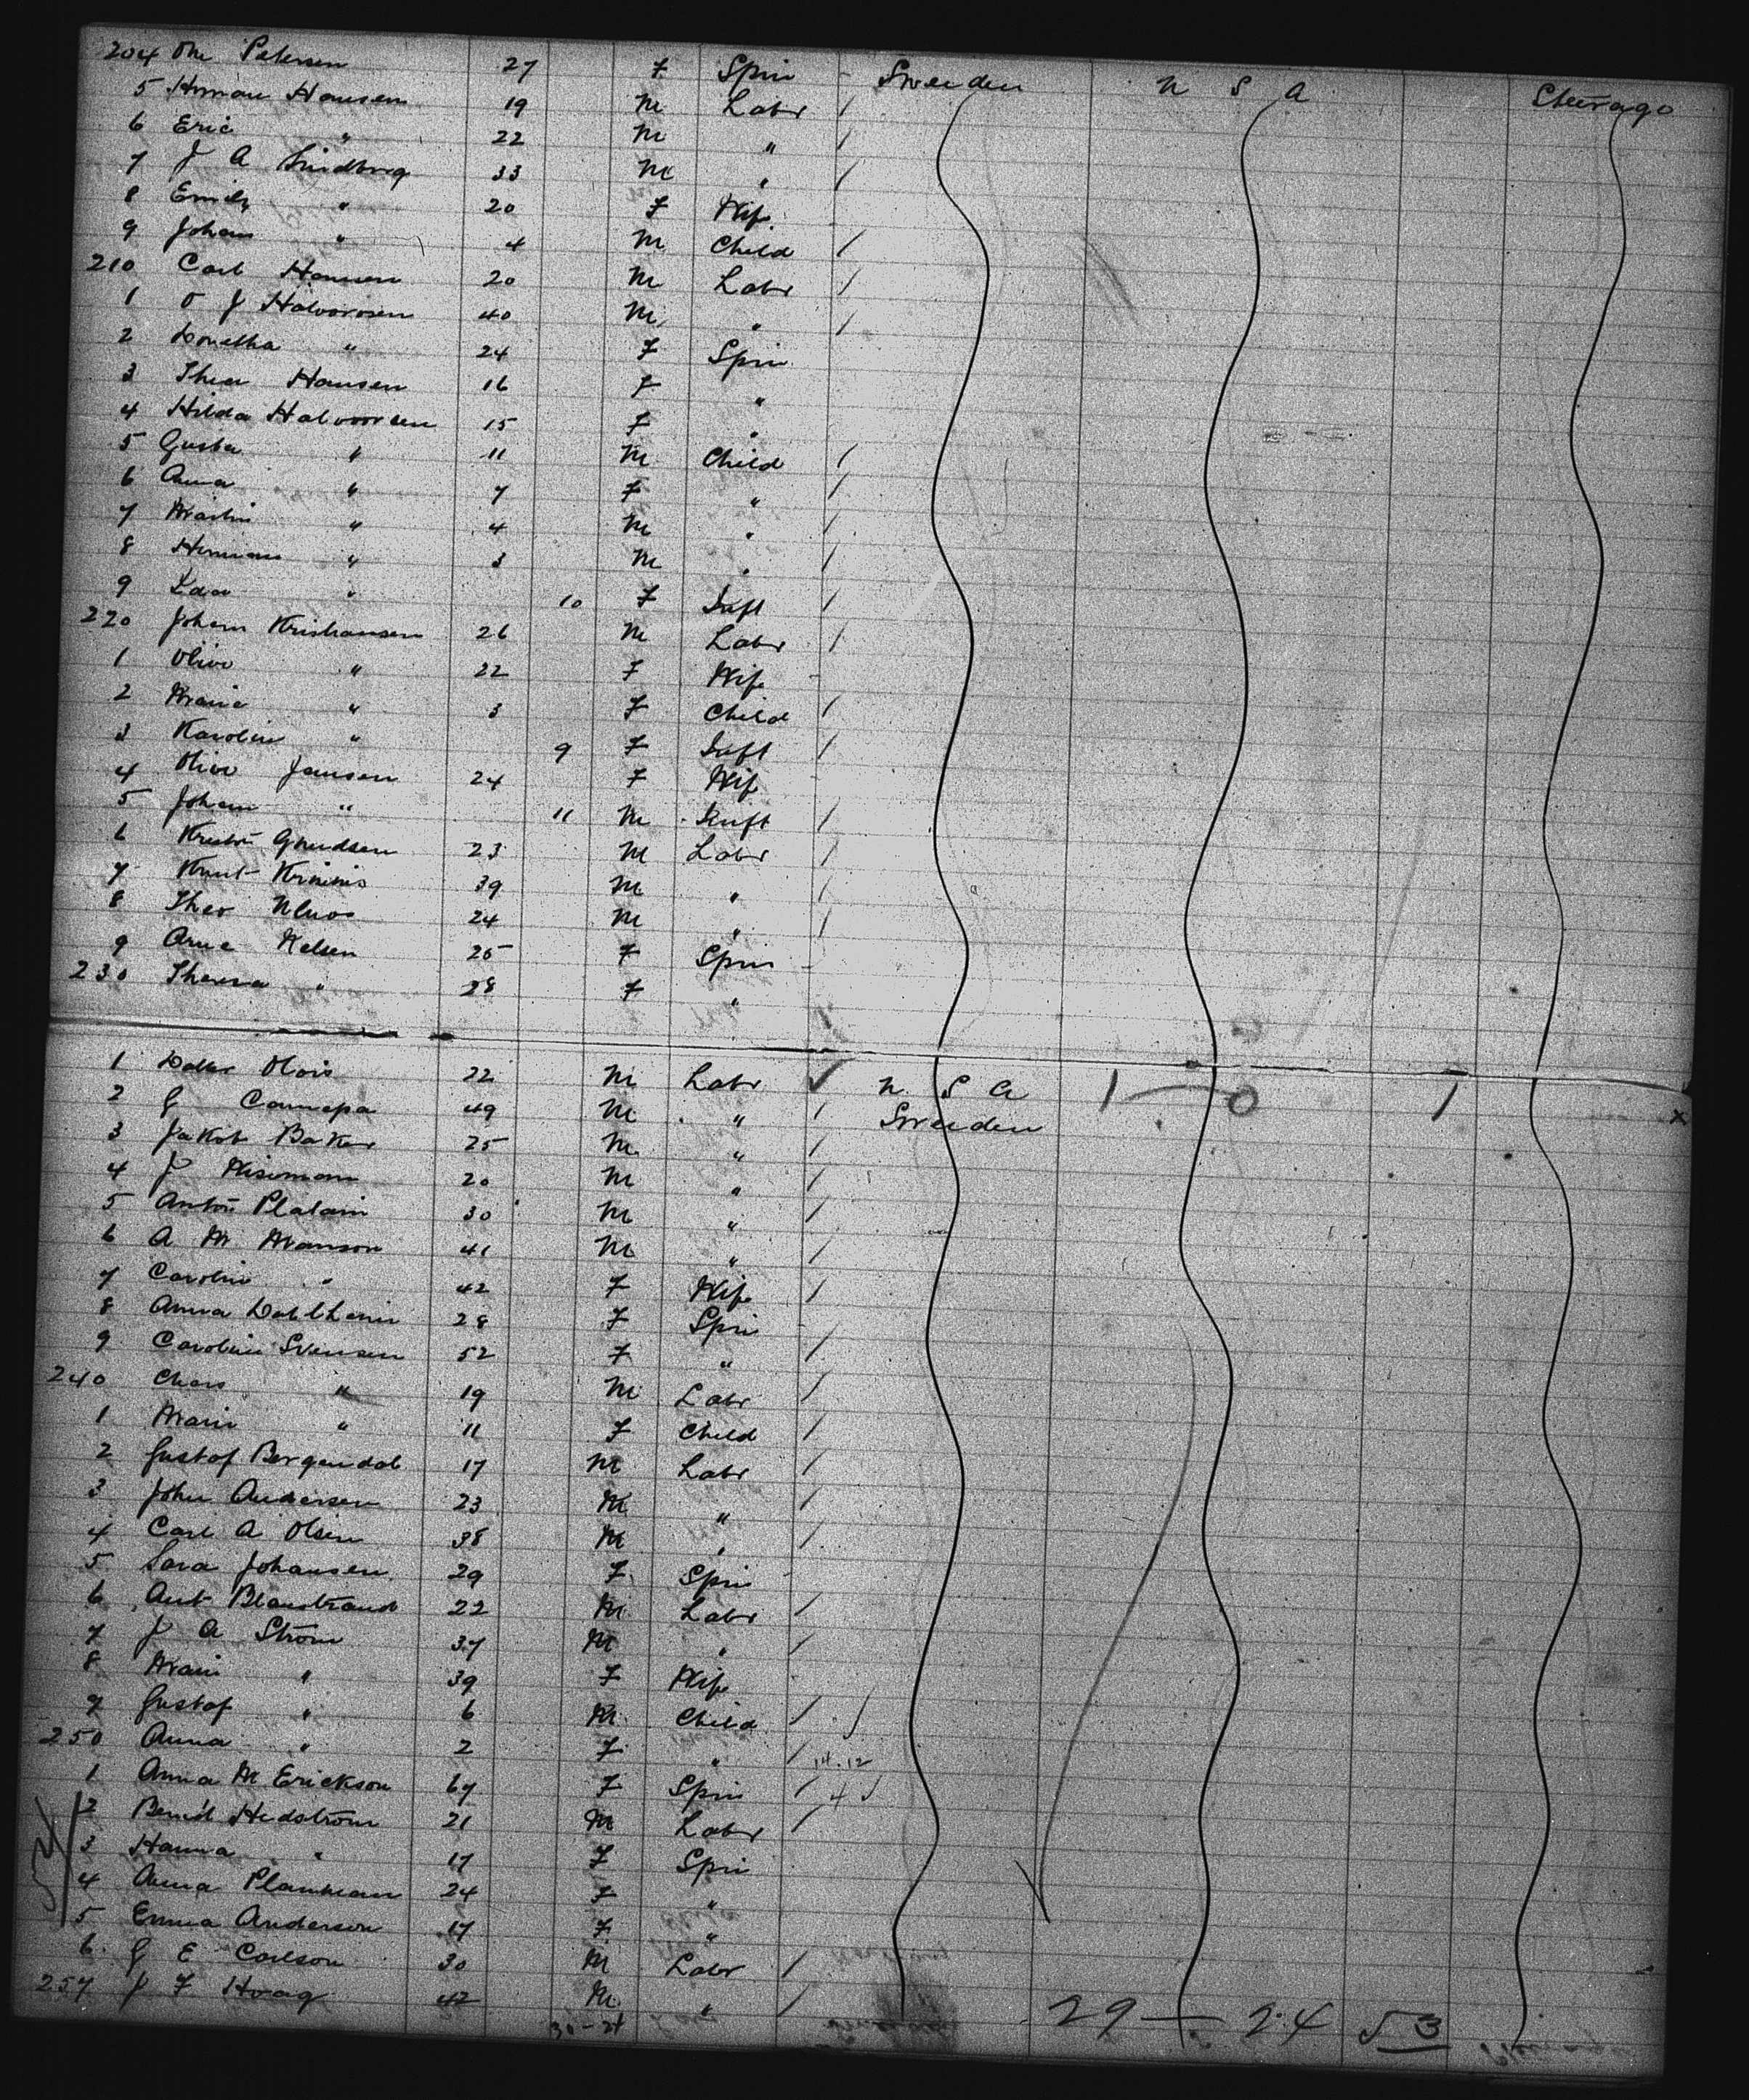 204 Ole Petersen 27 F Spin - Sweeden U S A Chicago
5 Herman Hansen 19 M Labr /
6 Eric " 22 M " /
7 J A Lindberg 33 M " /
8 Emily " 20 F Wife
9 Johan " 4 M Child /
210 Carl Hansen 20 M Labr /
1 O J Halvorsen 40 M " /
2 " 24 F Spin
3 Thea Hansen 16 F "
4 Hilda Halvorsen 15 F "
5 Gusta " 11 M Child /
6 Anna " 7 F " /
7 Martin " 4 M " /
8 Herman " 3 M " /
9 Ida " 10 F Inft /
220 Johan Kristiansen 26 M Labr /
1 Olive " 22 F Wife -
2 Marie " 3 F Child /
3 Karolin " 9 F Inft /
4 Olive Jansen 24 F Wife
5 Johan " 11 M Inft /
6 Gnudsen 23 M Labr /
7 Knut 39 M " /
8 Theo 24 M " /
9 Arne Nelsen 25 F Spin -
230 Theresa " 28 F "
1 Olois 22 M Labr ✓ U S A 1 — 0 1
2 G Cannepa 49 M " / Sweeden x
3 Jakob Baker 25 M " /
4 J Wiseman 20 M " /
5 Anton Platain 30 M " /
6 A M Manson 41 M " /
7 Carolin " 42 F Wife /
8 Anna Dahlheim 28 F Spin -
9 Carolin Svensen 52 F " /
240 Chas " 19 M Labr /
1 Marie " 11 F Child /
2 Gustof Bergendal 17 M Labr /
3 John Andersen 23 M " /
4 Carl A Olsen 38 M " /
5 Sara Johansen 29 F Spin -
6 Ant Blanstrand 22 M Labr /
7 J A Strom 37 M " /
8 Marie " 39 F Wife -
9 Gustof " 6 M Child /
250 Anna " 2 F " / 14.12
1 Anna M Erickson 67 F Spin / 4
2 Hedstrom 21 M Labr /
3 Hanna " 17 F Spin
4 Anna Plankman 24 F "
5 Emma Anderson 17 F "
6 G E Carlson 30 M Labr /
257 J F Hoag 42 M " /
30-24 29 — 24 53